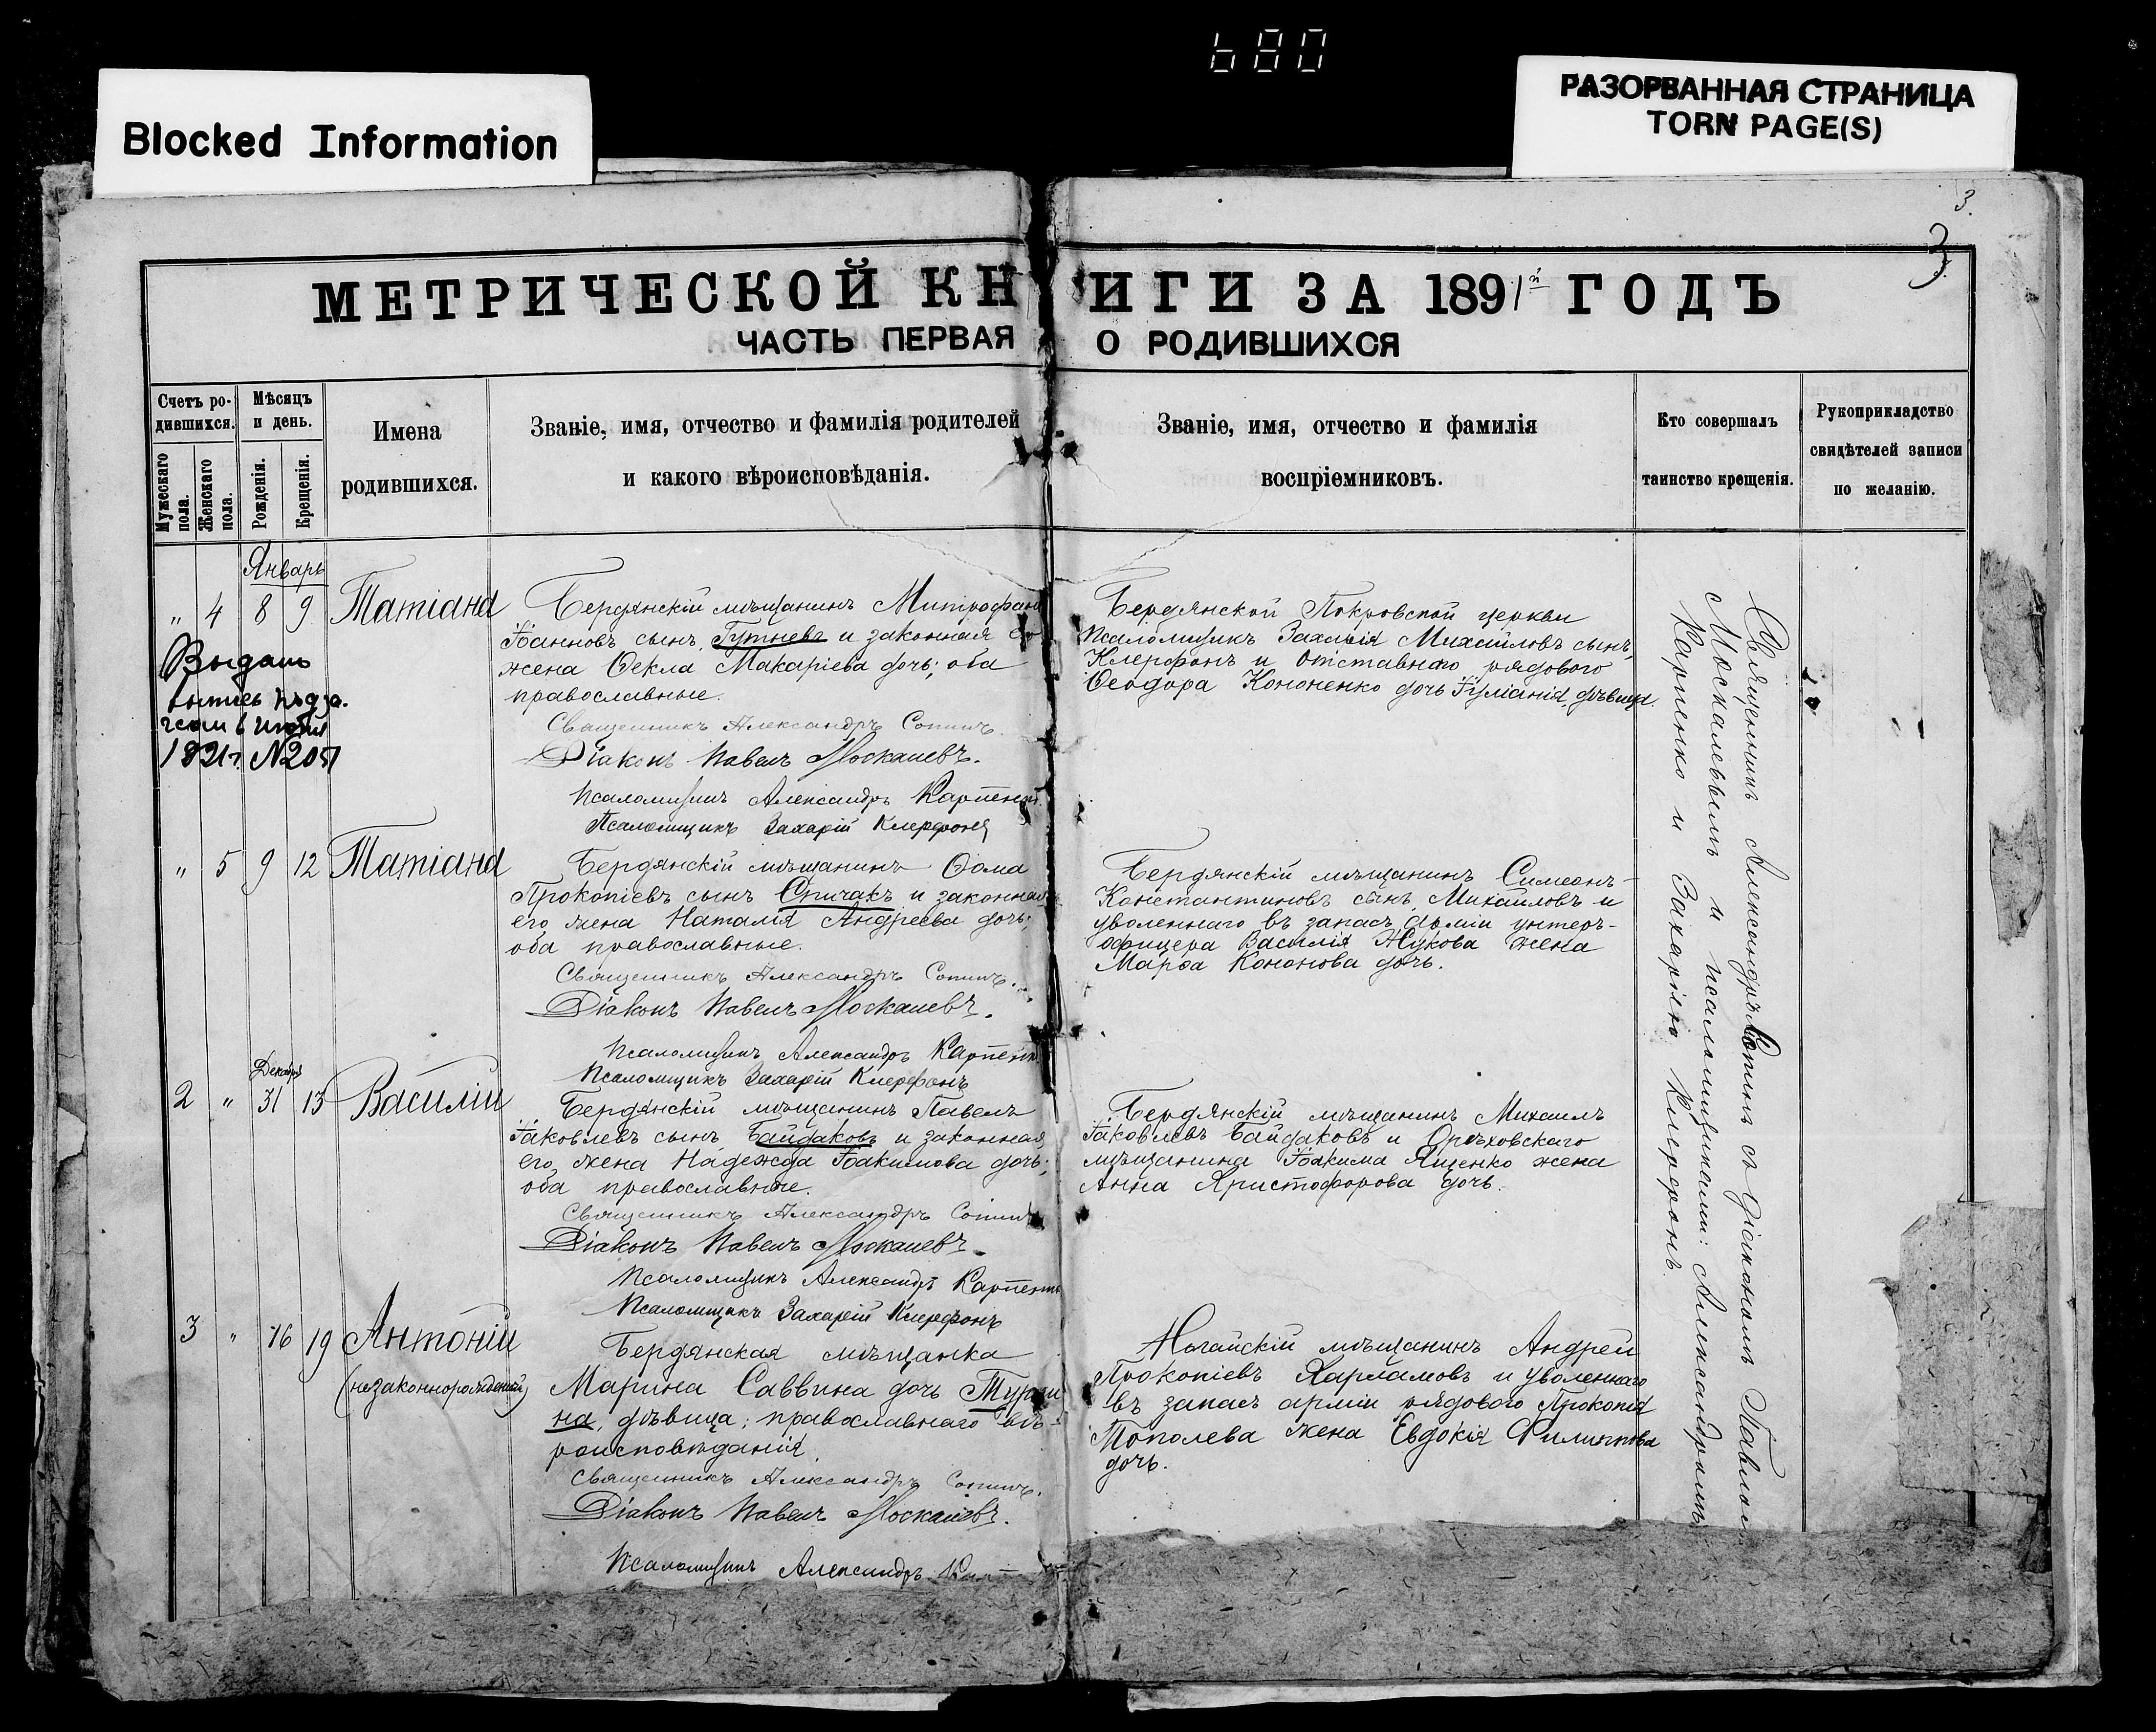 680
Blocked Information
РАЗОРВАННАЯ СТРАНИЦА
TORN PAGE(S)
3.
3
МЕТРИЧЕСКОЙ КНИГИ ЗА 1891й ГОДЪ
ЧАСТЬ ПЕРВАЯ О РОДИВШИХСЯ
Счетъ ро-
дившихся.
Мужескаго пола.
Женскаго пола.
Мѣсяцъ
и день.
Рожденія.
Крещенія.
Имена
родившихся.
Званіе, имя, отчество и фамилія родителей
и какого вѣроисповѣданія.
Званіе, имя, отчество и фамилія
воспріемниковъ.
Кто совершалъ
таинство крещенія.
Рукоприкладство
свидѣтелей записи
по желанію.
Январь
„ 4 8 9 Татіана
Выдань
1821г. №205
Бердянскій мѣщанинъ Митрофанъ
Іоанновъ сынъ Гутневъ и законная его
жена Ѳекла Макаріева дочь; оба
православные.
Священникъ Александръ Сотичъ.
Діаконъ Павелъ Москалевъ.
Псаломщикъ Александръ Карпенко
Псаломщикъ Захарій Клерфонъ
Бердянской Покровской церкви
псаломщикъ Захарія Михайловъ сынъ
Клерфонъ и отставного рядового
Ѳеодора Кононенко дочь Іуліанія, дѣвица.
„ 5 9 12 Татіана
Бердянскій мѣщанинъ Ѳома
Прокопіевъ сынъ Спичакъ и законная
его жена Наталія Андреева дочь;
оба православные.
Священникъ Александръ Сотичъ.
Діаконъ Павелъ Москалевъ.
Псаломщикъ Александръ Карпенко
Псаломщикъ Захарій Клерфонъ
Бердянскій мѣщанинъ Симеонъ
Константиновъ сынъ Михайловъ и
уволеннаго въ запасъ арміи унтеръ-
офицера Василія Жукова жена
Марѳа Кононова дочь.
Декабрь
2 „ 31 13 Василій
Бердянскій мѣщанинъ Павелъ
Іаковлевъ сынъ Байдаковъ и законная
его жена Надежда Іоакимова дочь;
оба православные.
Священникъ Александръ Сотичъ
Діаконъ Павелъ Москалевъ.
Псаломщикъ Александръ Карпенко
Псаломщикъ Захарій Клерфонъ
Бердянскій мѣщанинъ Михаилъ
Іаковлевъ Байдаковъ и Орѣховскаго
мѣщанина Іоакима Яценко жена
Анна Христофорова дочь.
3 „ 16 19 Антоній
(незаконнорожденный)
Бердянская мѣщанка
Марина Саввина дочь
на, дѣвица; православнаго вѣ-
роисповѣданія.
Священникъ Александръ Сотичъ.
Діаконъ Павелъ Москалевъ.
Псаломщикъ Александръ
Ногайскій мѣщанинъ Андрей
Прокопіевъ Харламовъ и уволеннаго
въ запасъ арміи рядового Прокопія
Тополева жена Евдокія Филиппова
дочь.
Священникъ Александръ Сотичъ съ діакономъ Павломъ
Москалевымъ и псаломщиками: Александромъ
Карпенко и Захаріею Клерфонъ.